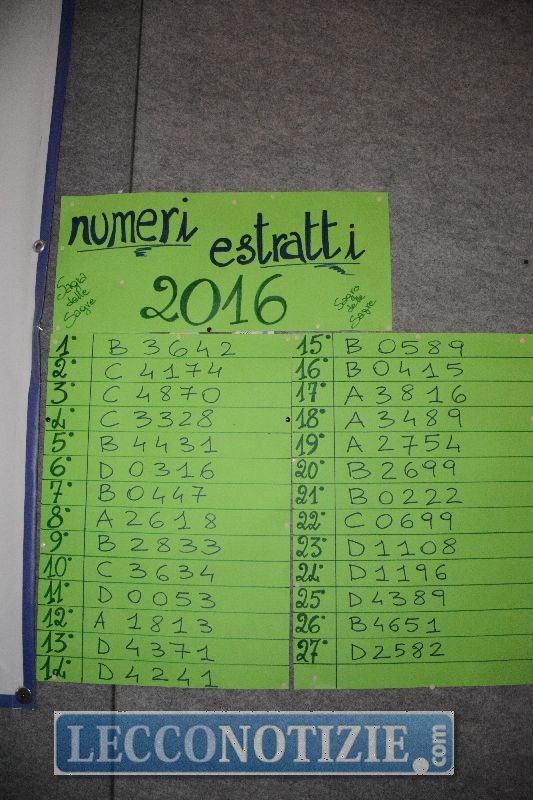 numeri
estratti
Sagra
delle
Sagre
2016
Sagra
delle
Sagre
1° B 3642
2° C 4174
3° C 4870
4° C 3328
5° B 4431
6° D 0316
7° B 0447
8° A 2618
9° B 2833
10° C 3634
11° D 0053
12° A 1813
13° D 4371
14° D 4241
15° B 0589
16° B 0415
17° A 3816
18° A 3489
19° A 2754
20° B 2699
21° B 0222
22° C 0699
23° D 1108
24° D 1196
25° D 4389
26° B 4651
27° D 2582
LECCONOTIZIE.com